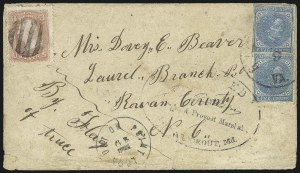 Mrs. Davey E. Beaver
Laurel Branch P.O
Rowan County
N. C.
By Flag
of truce
Provost Marshal
Md.
VA